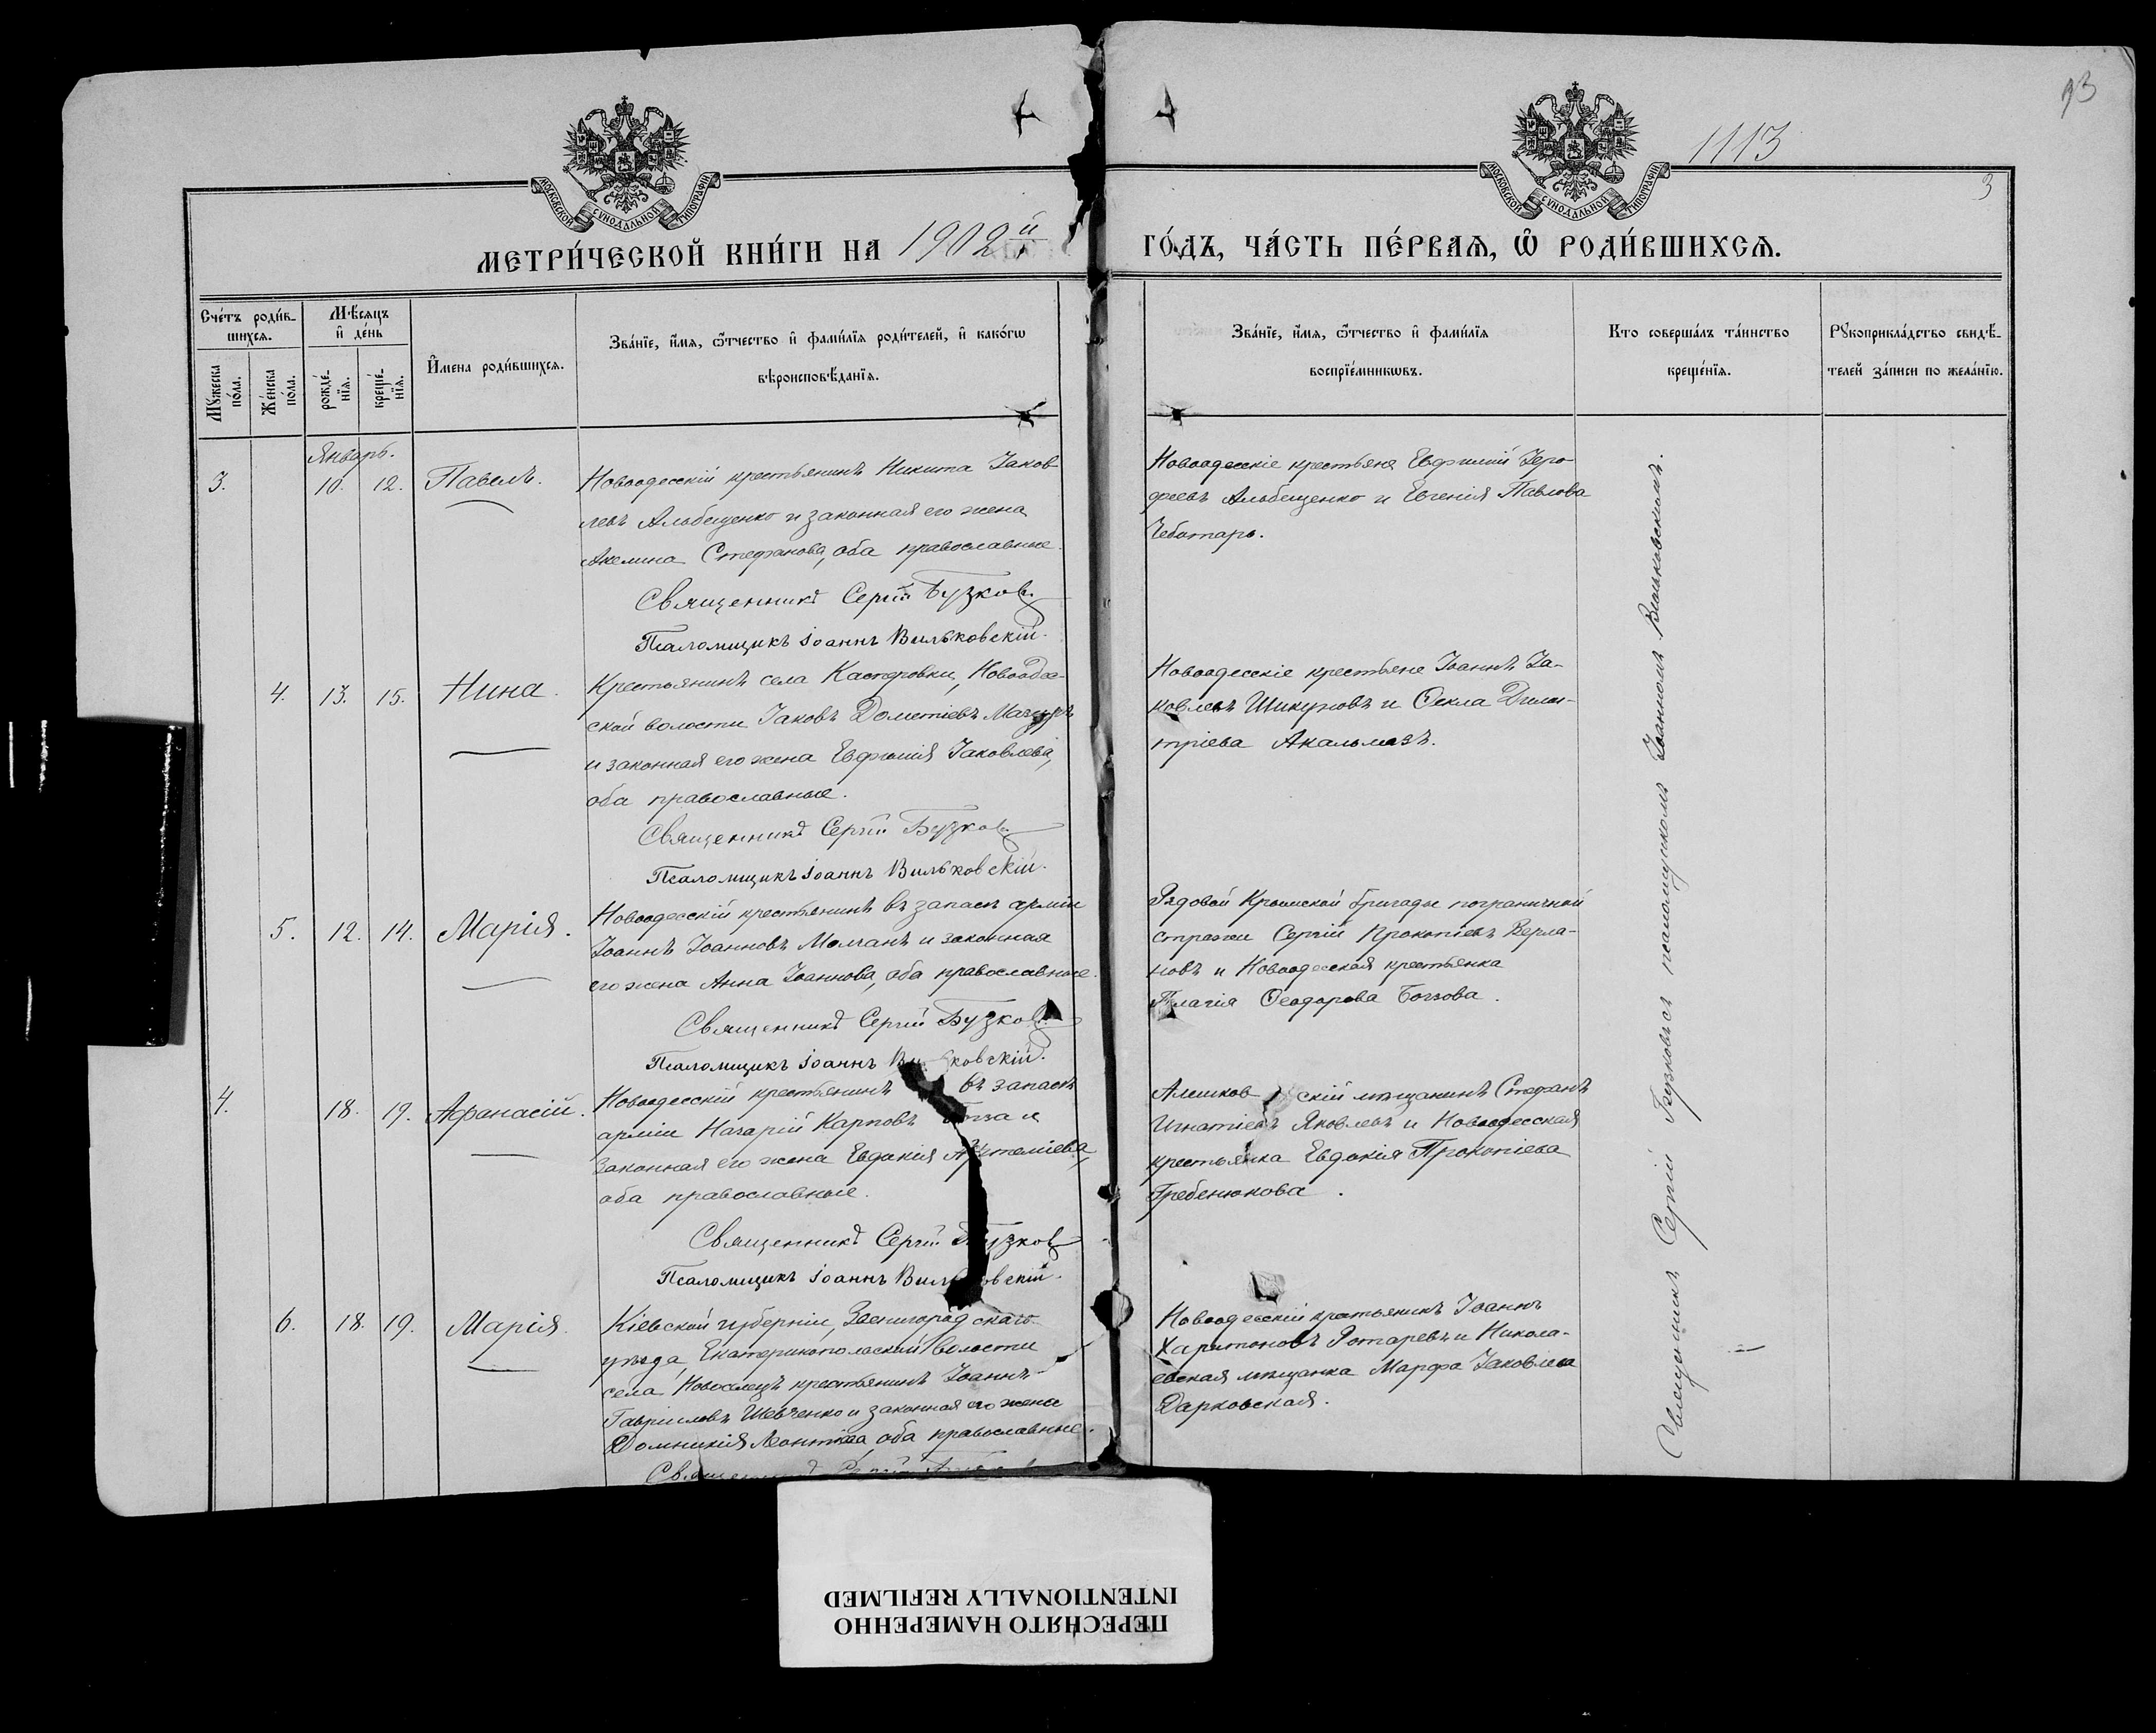 93
1113
3
МОСКОВСКОЙ СѴНОДАЛЬНОЙ ТИПОГРАФІИ
МОСКОВСКОЙ СѴНОДАЛЬНОЙ ТИПОГРАФІИ
МЕТРИ́ЧЕСКОЙ КНИ́ГИ НА 1902 й
ГО́ДЪ, ЧА́СТЬ ПЕ́РВАѦ, Ѡ҆ РОДИ́ВШИХСѦ.
Сче́тъ роди́в-
шихсѧ.
Мꙋжеска по́ла.
Же́нска по́ла.
Мѣ́сѧцъ
и҆ де́нь
рожде́-
нїѧ.
креще́-
нїѧ.
И҆мена роди́вшихсѧ.
Зва́нїе, и҆́мѧ, ѻ҆́тчество и҆ фами́лїѧ роди́телей, и҆ како́гѡ
вѣроисповѣ́данїѧ.
Зва́нїе, и҆́мѧ, ѻ҆́тчество и҆ фами́лїѧ
воспрїе́мникѡвъ.
Кто соверша́лъ та́инство
креще́нїѧ.
Рꙋкоприкла́дство свидѣ́-
телей за́писи по жела́нїю.
Январь.
3. 10. 12. Павелъ.
Новоодесскій крестьянинъ Никита Іаков-
левъ Альбещенко и законная его жена
Акелина Стефанова, оба православные.
Священникъ Сергій Бузков
Псаломщикъ Іоаннъ Вильковскій.
Новоодесскіе крестьяне Евфимій Іеро-
феевъ Альбещенко и Евгенія Павлова
Чеботарь.
4. 13. 15. Нина.
Крестьянинъ села Касперовки, Новоодес-
ской волости Іаковъ Дометіевъ
и законная его жена Евфимія Іаковлева,
оба православные.
Священникъ Сергій Бузков
Псаломщикъ Іоаннъ Вильковскій.
Новоодесскіе крестьяне Іоаннъ Іа-
ковлевъ Шикуновъ и Ѳекла Дими-
тріева Акальмазъ.
5. 12. 14. Марія.
Новоодесскій крестьянинъ въ запасѣ арміи
Іоаннъ Іоанновъ Молчанъ и законная
его жена Анна Іоаннова, оба православные.
Священникъ Сергій Бузков
Псаломщикъ Іоаннъ Ви ковскій.
Рядовой Крымской бригады пограничной
стражи Сергій Прокопіевъ Верла-
новъ и Новоодесская крестьянка
Пелагія Ѳеодорова
4. 18. 19. Афанасій.
Новоодесскій крестьянинъ въ запасѣ
арміи Назарій Карповъ и
законная его жена Евдокія
оба православные.
Священникъ Сергій Бузков
Псаломщикъ Іоаннъ Виль овскій.
Алешков скій мѣщанинъ Стефанъ
Игнатіевъ Яковлевъ и Новоодесская
крестьянка Евдокія Прокопіева
Гребенюкова.
6. 18. 19. Марія.
Кіевской губерніи, Звенигородскаго
уѣзда, Екатеринопольской волости
села Новоселецъ крестьянинъ Іоаннъ
Гавриловъ Шевченко и законная его жена
Домникія Леонтіева, оба православные.
Новоодесскій крестьянинъ Іоаннъ
Харитоновъ Ротаревъ и Никола-
евская мѣщанка Марфа Іаковлева
Дарковская.
Священникъ Сергій Бузковъ съ псаломщикомъ Іоанномъ Вильковскимъ.
ПЕРЕСНЯТО НАМЕРЕННО
INTENTIONALLY REFILMED